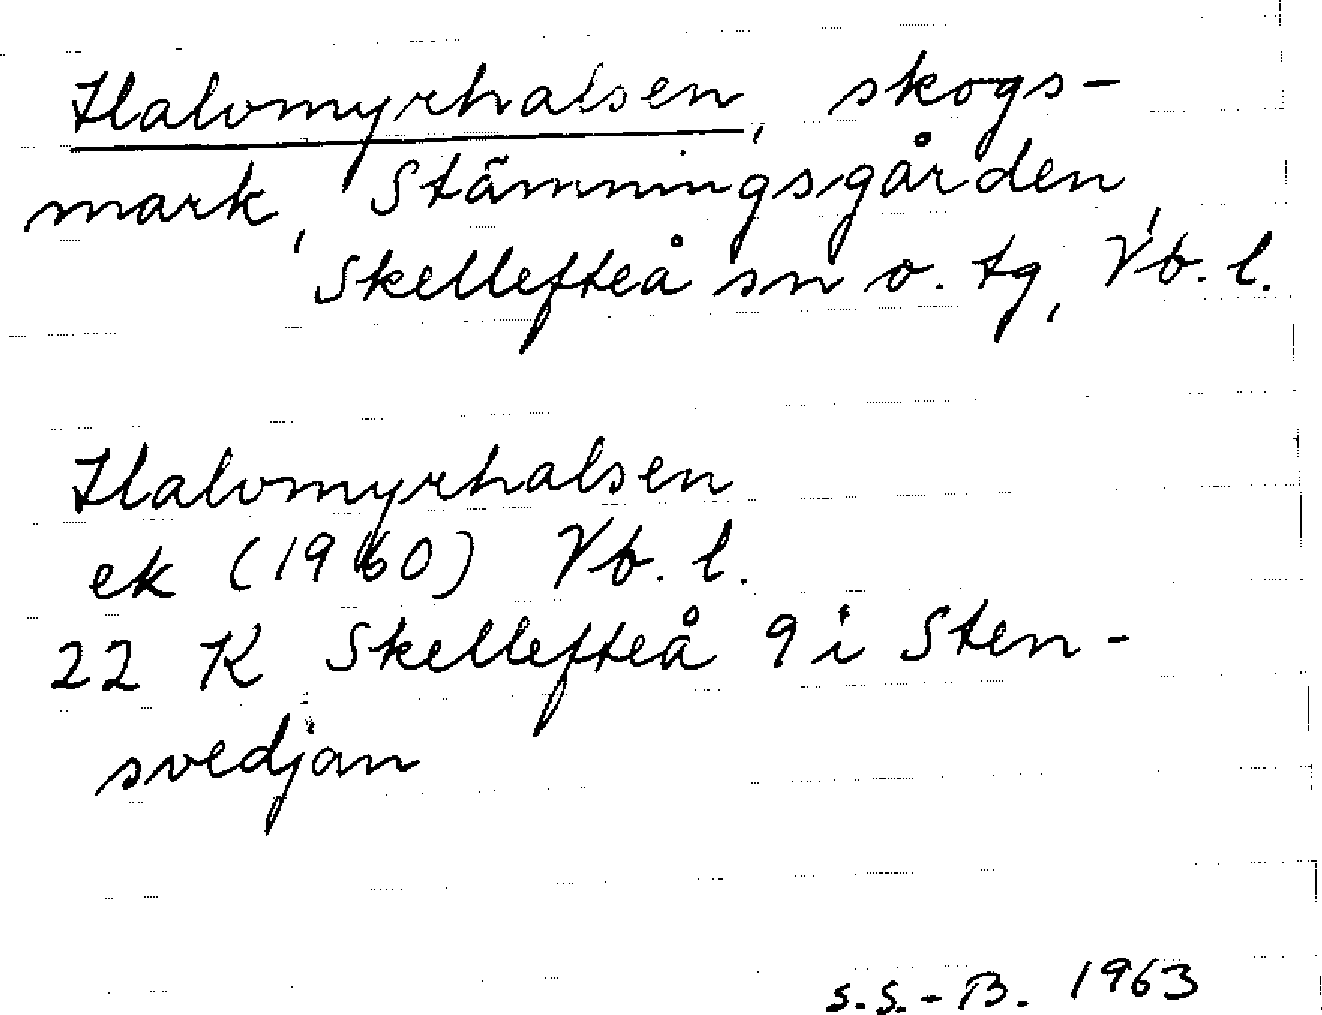 Halvmyrhalsen, skogs-
mark, Stämningsgården,
Skellefteå sn o. tg, Vb. l.
Halvmyrhalsen
ek (1960) Vb. l.
22 K Skellefteå 9 i Sten-
svedjan
S.S.-B. 1963